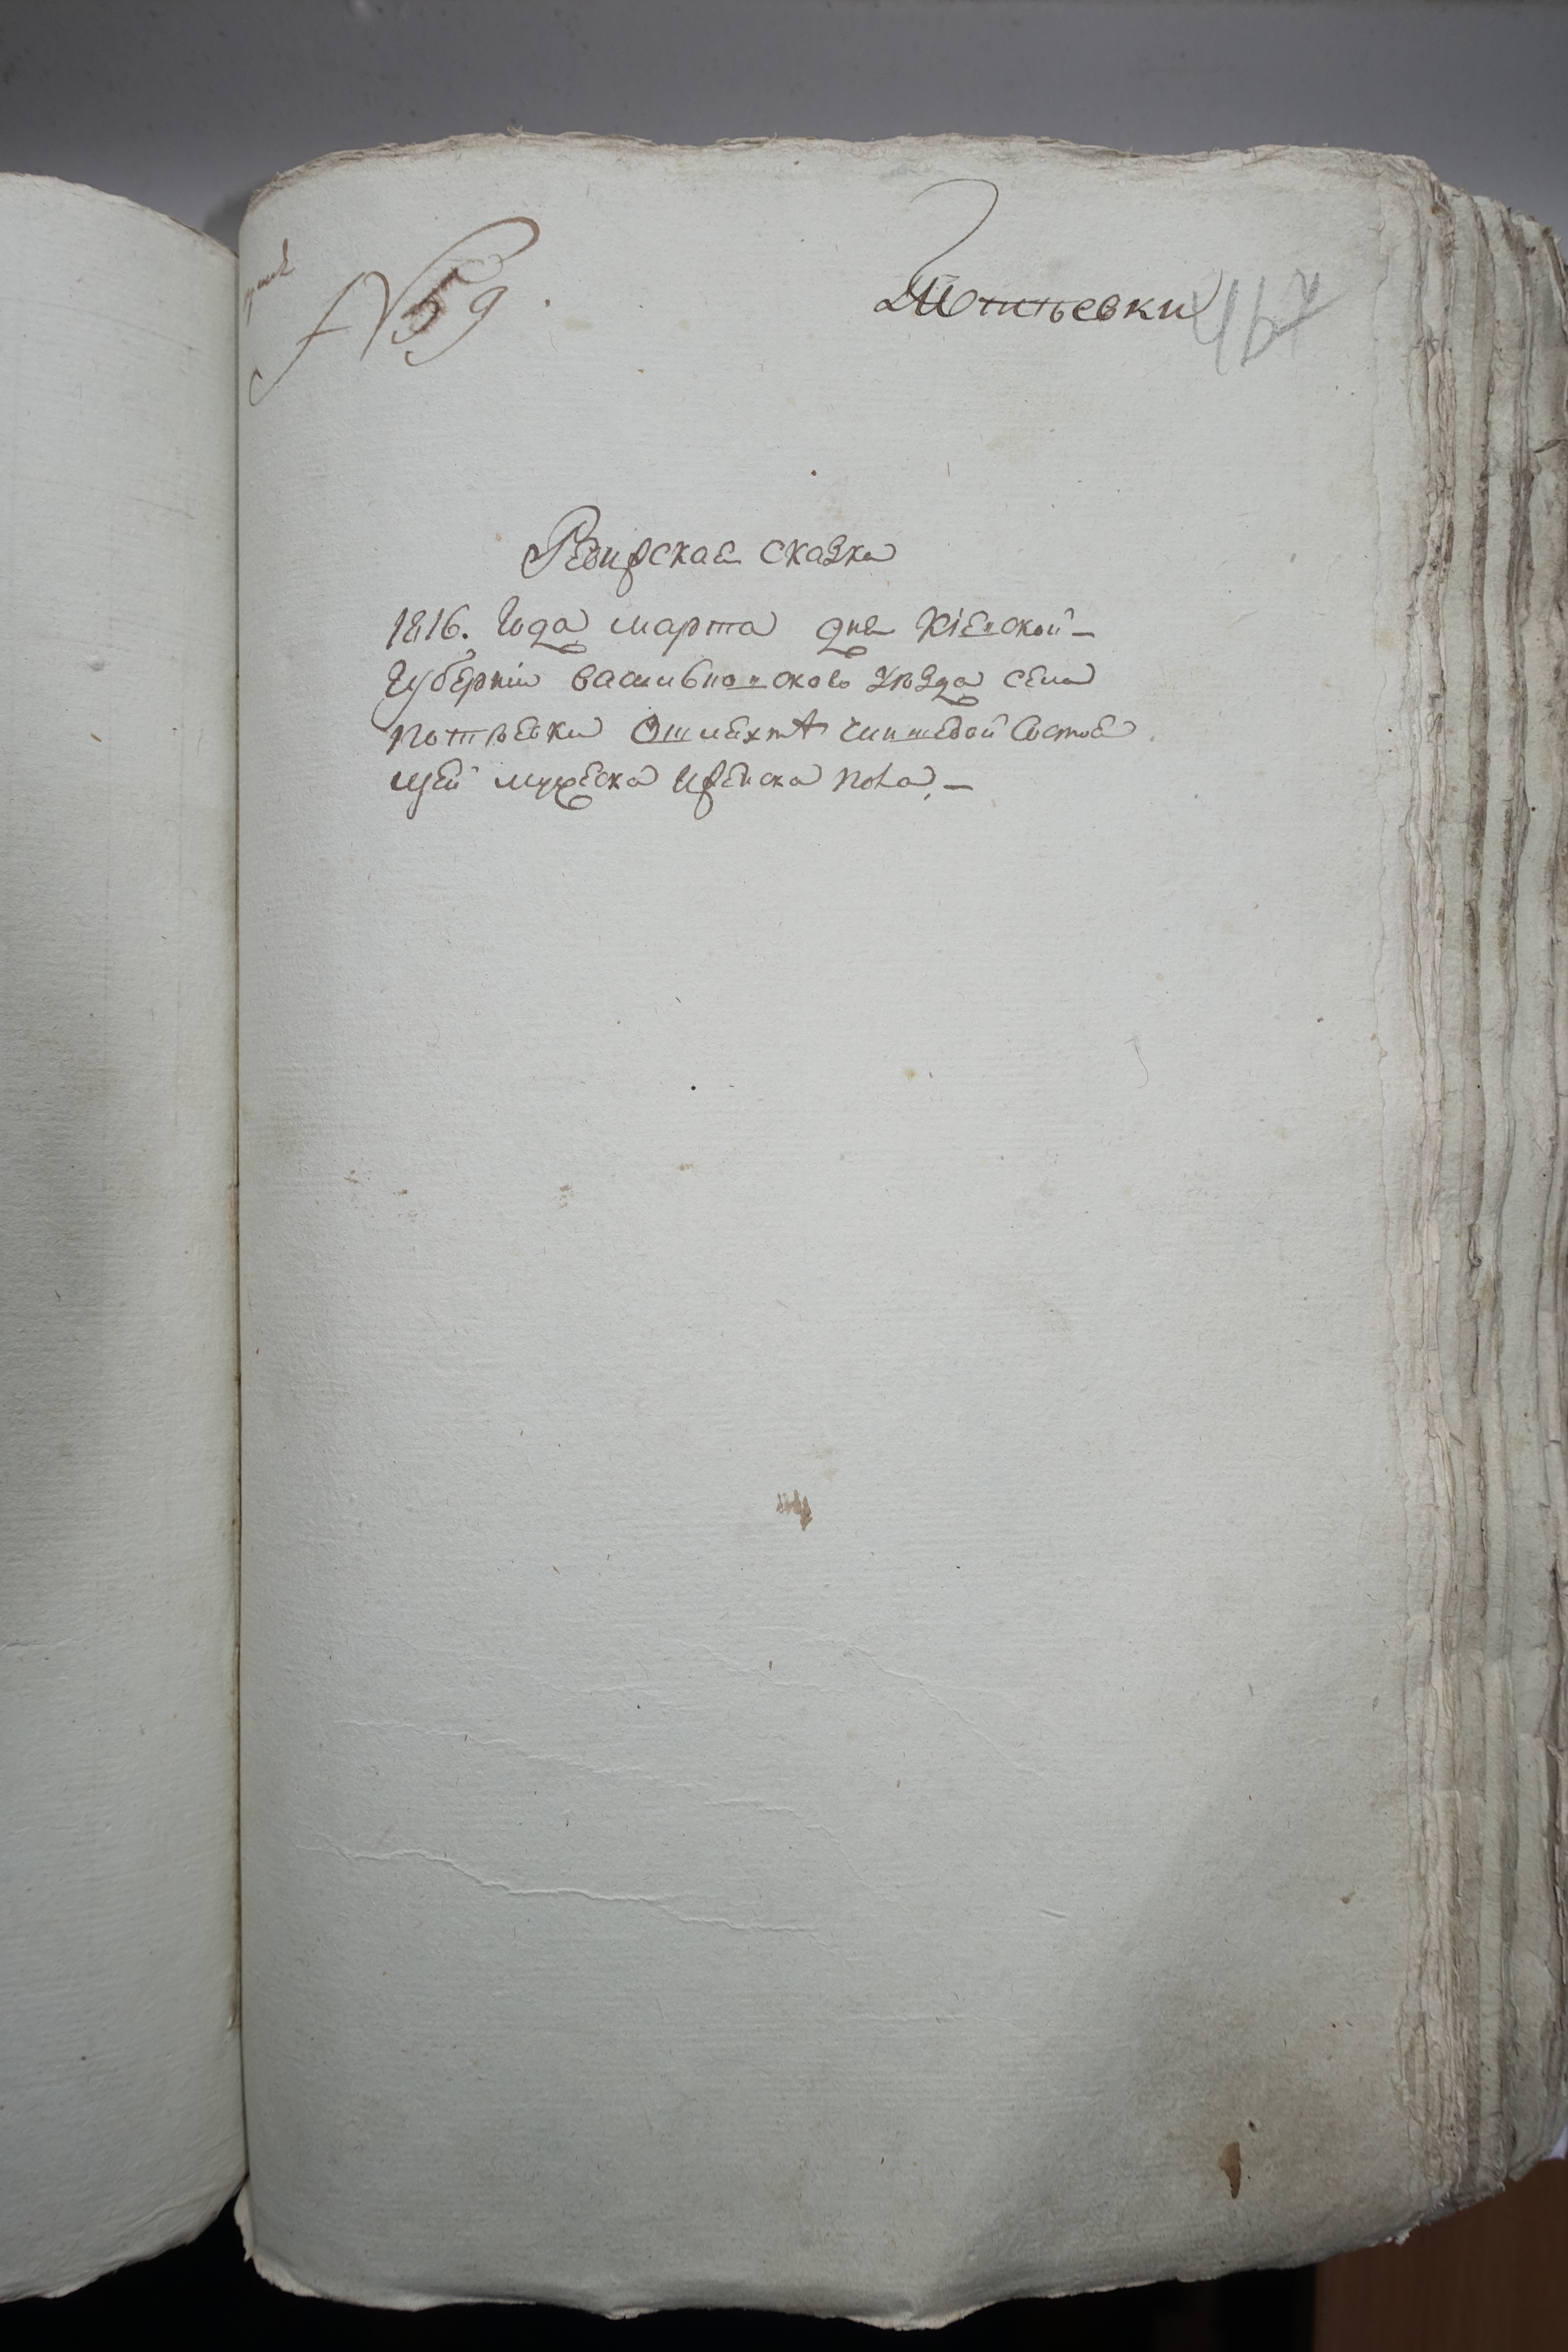 № 59.
Потіевки
467
Ревизская сказка
1816. Года марта дня Кіевской
Губерніи васильковского уѣзда села
потѣевки О шляхтѣ чиншевой состоя
щей мужеска иженска пола, —